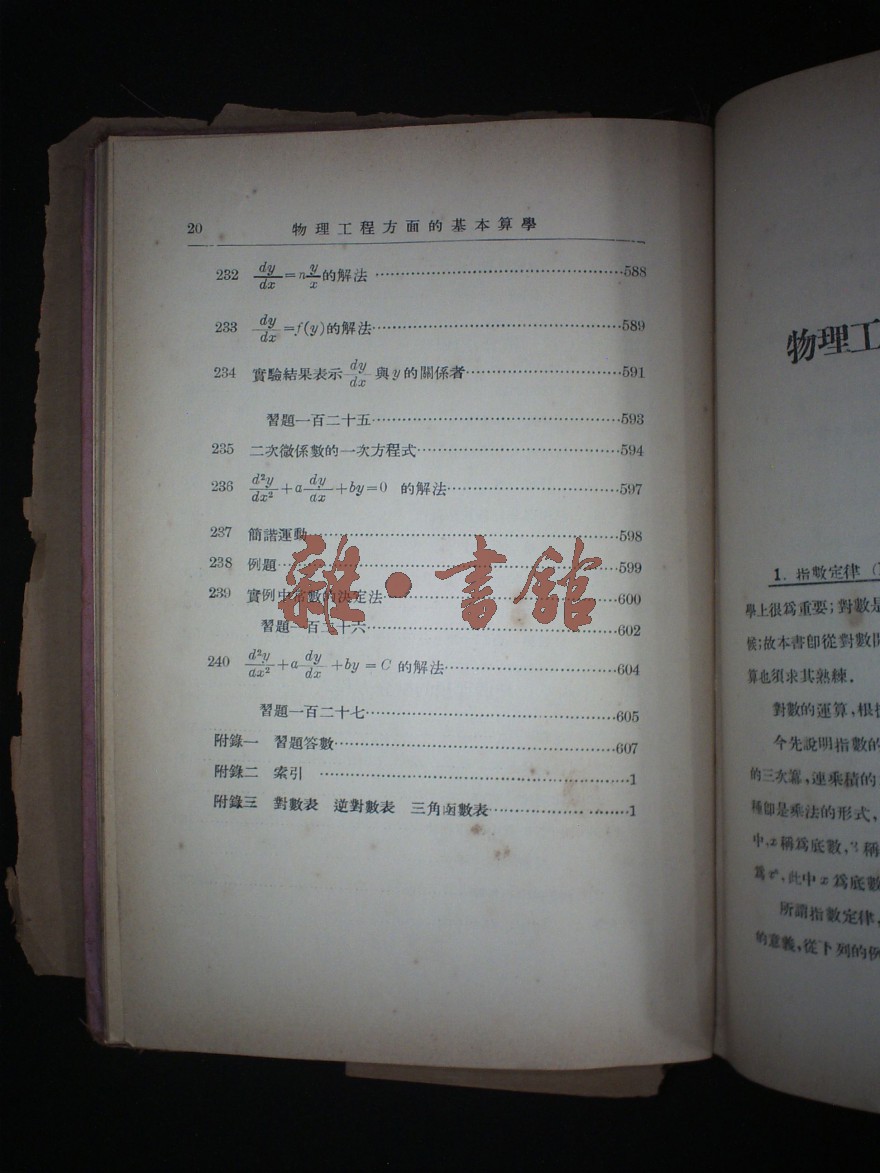 20 物理工程方面的基本算學
232 dy/dx=n y/x的解法 588
233 dy/dx=f(y)的解法 589
234 實驗結果表示dy/dx與y的關係者 591
習題一百二十五 593
235 二次微係數的一次方程式 594
236 d²y/dx²+a dy/dx+by=0 的解法 597
237 簡諧運動 598
238 例題 599
239 實例中常數的決定法 600
習題一百二十六 602
240 d²y/dx²+a dy/dx+by=C 的解法 604
習題一百二十七 605
附錄一 習題答數 607
附錄二 索引 1
附錄三 對數表 逆對數表 三角函數表 1
雜·書館
物理工
1. 指數定律
學上很爲重要;對數是
候;故本書卽從對數開
算也須求其熟練.
對數的運算,根據
今先說明指數的
的三次冪,連乘積的
種卽是乘法的形式,
中,x稱爲底數,3稱
爲,此中x爲底數
所謂指數定律,
的意義,從下列的例